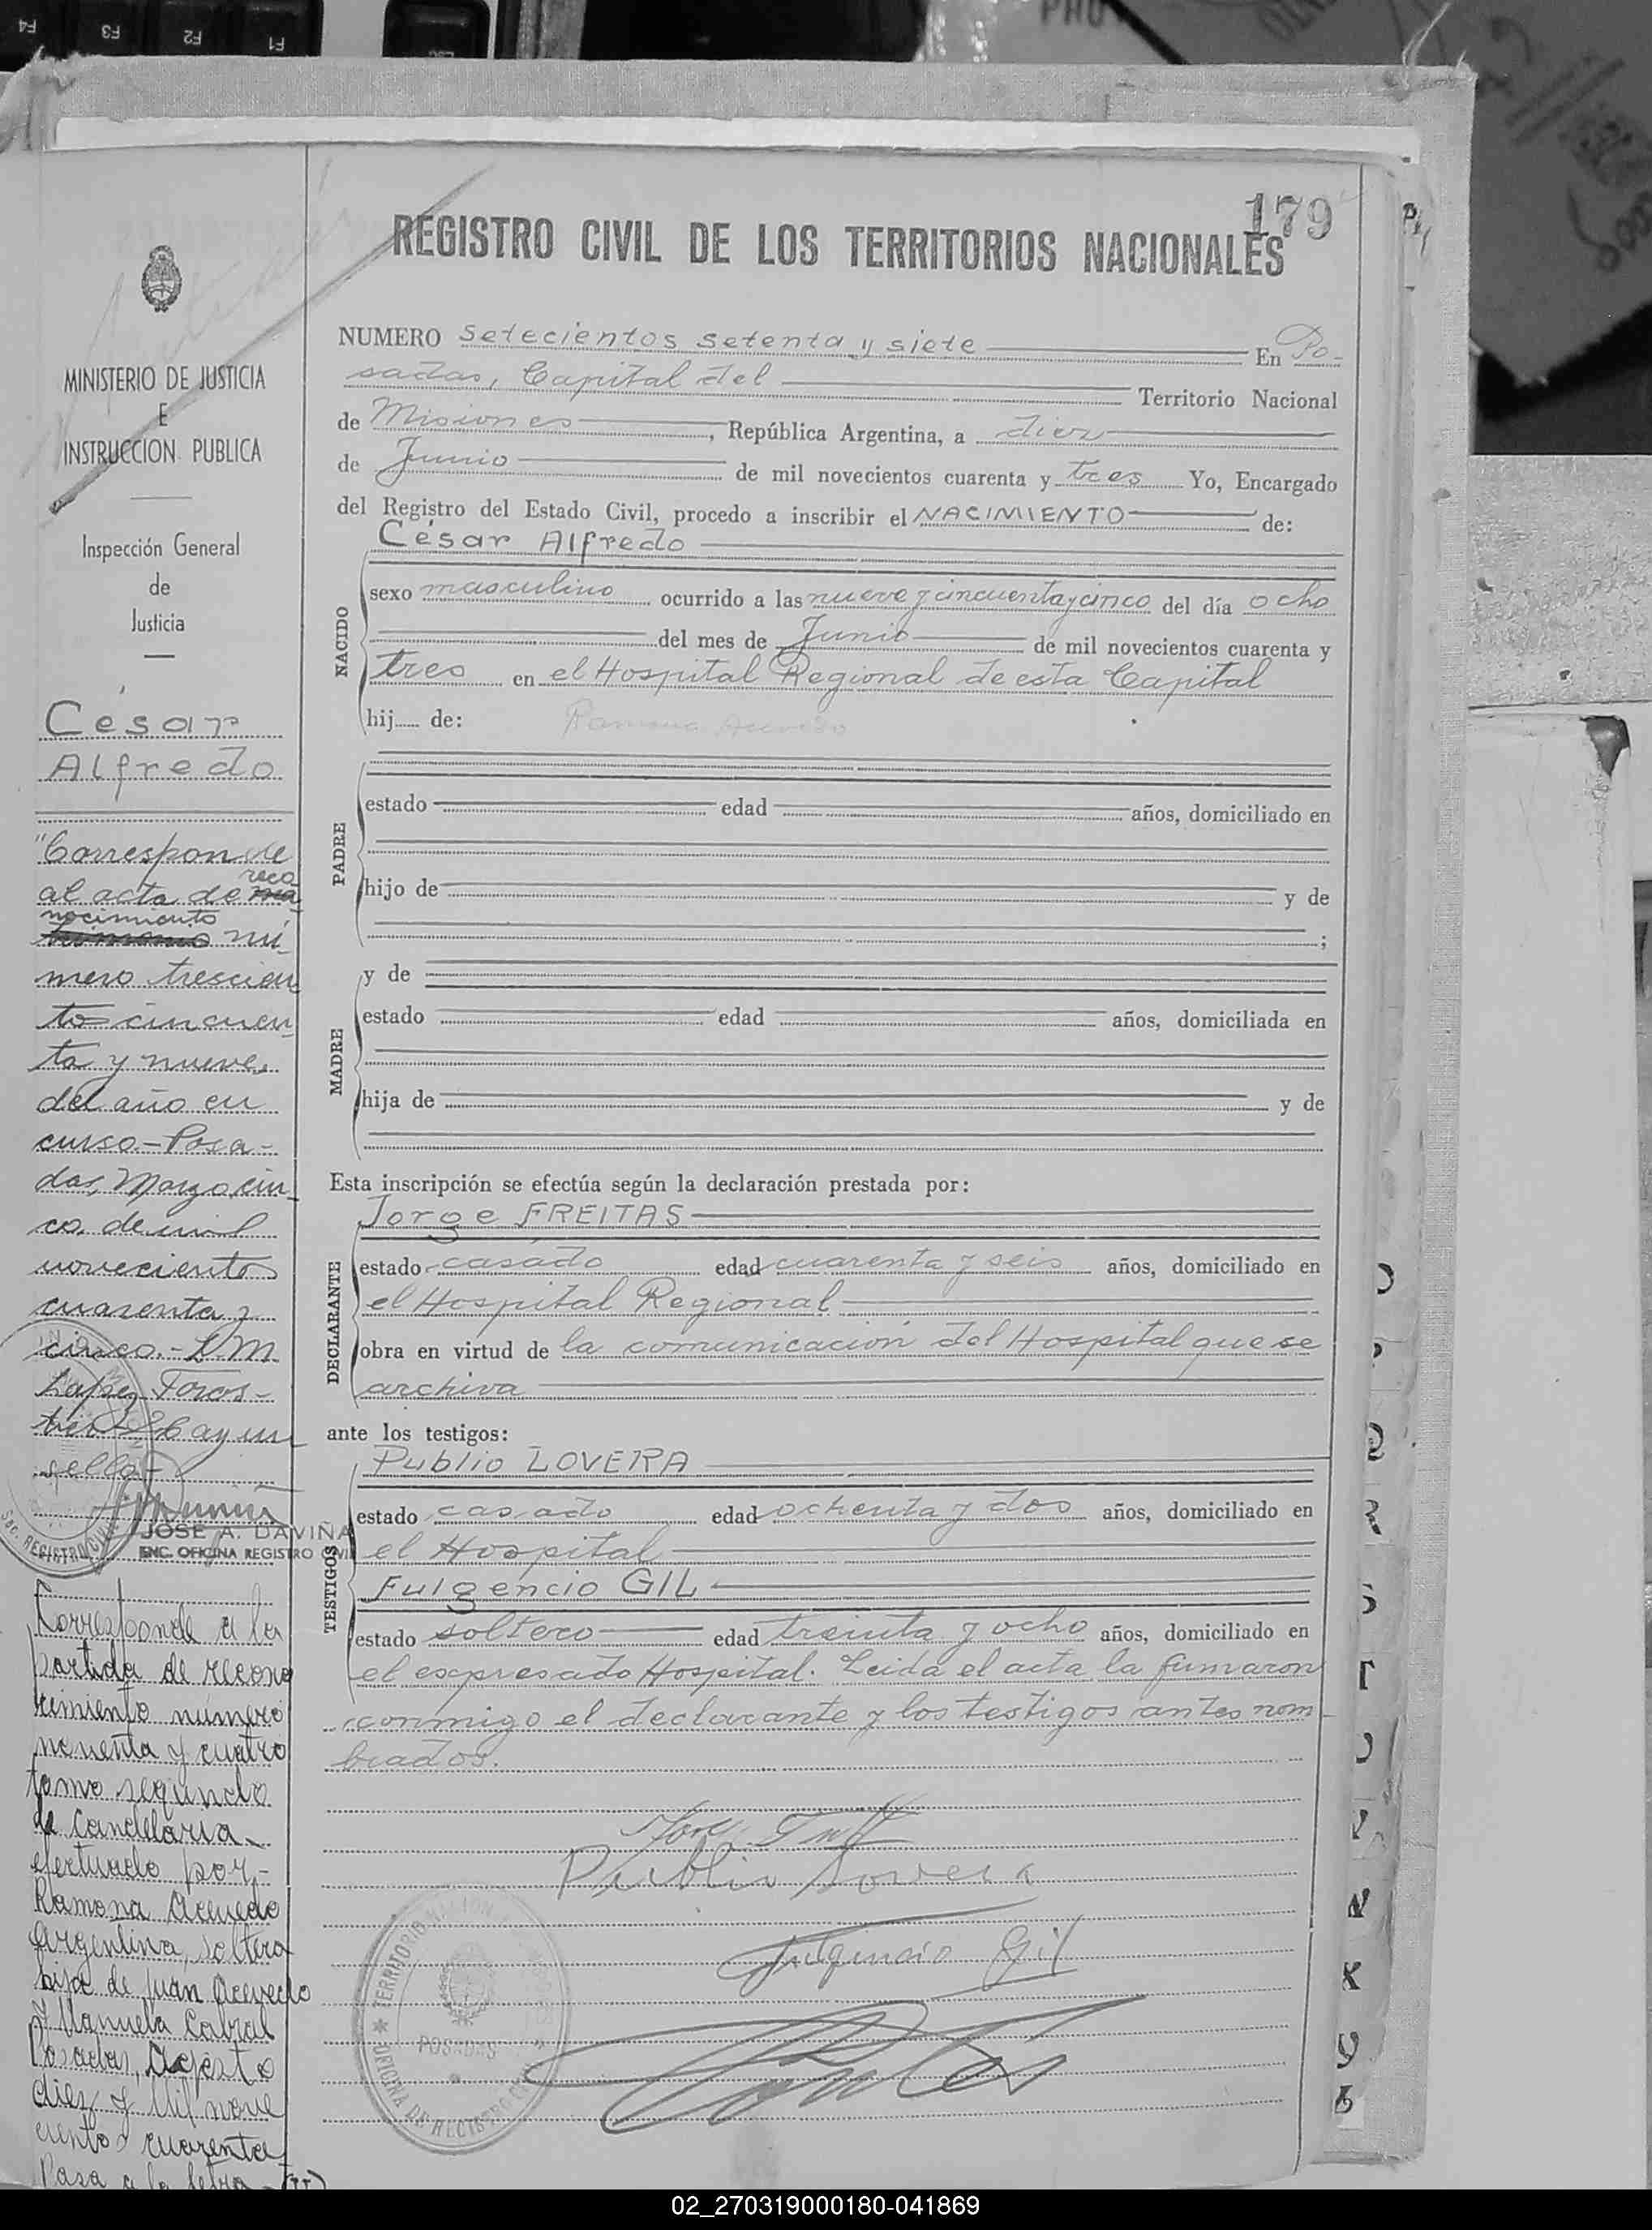 F4 F3 F2 F1
179
REGISTRO CIVIL DE LOS TERRITORIOS NACIONALES
MINISTERIO DE JUSTICIA
E
INSTRUCCION PUBLICA
Inspección General
de
Justicia
César
Alfredo
"Corresponde
al acta de ma reco
trimonio nocimiento nú-
mero trescien
tos cincuen
ta y nueve
del año en
curso.- Posa-
das, Marzo cin
co de mil
novecientos
cuarenta y
cinco.- E M
Lopez Foras-
tier Hay un
sello-
JOSE A. DAVIÑA
ENC. OFICINA REGISTRO CIVIL
Corresponde a la
partida de recono
cimiento número
noventa y cuatro
tomo segundo
de Candelaria-
efectuado por,-
Ramona Acevedo
Argentina, soltera
hija de Juan Acevedo
y Manuela Cabral
Posadas, Agosto
diez y Mil nove
cientos cuarenta
Pasa a la letra
NUMERO Setecientos setenta y siete En Po-
sadas, Capital del Territorio Nacional
de Misiones, República Argentina, a diez
de Junio de mil novecientos cuarenta y tres Yo, Encargado
del Registro del Estado Civil, procedo a inscribir el NACIMIENTO de:
César Alfredo
NACIDO
sexo masculino ocurrido a las nueve y cincuenta y cinco del día ocho
del mes de Junio de mil novecientos cuarenta y
tres en el Hospital Regional de esta Capital
hij de: Ramona Acevedo
PADRE
estado edad años, domiciliado en
hijo de y de
;
MADRE
y de
estado edad años, domiciliada en
hija de y de
Esta inscripción se efectúa según la declaración prestada por:
DECLARANTE
Jorge FREITAS
estado casado edad cuarenta y seis años, domiciliado en
el Hospital Regional
obra en virtud de la comunicación del Hospital que se
archiva
ante los testigos:
TESTIGOS
Publio LOVERA
estado casado edad ochenta y dos años, domiciliado en
el Hospital
Fulgencio GIL
estado soltero edad treinta y ocho años, domiciliado en
el expresado Hospital. Leida el acta la firmaron
conmigo el declarante y los testigos antes nom-
brados.
Publio Lovera
Fulgencio Gil
TERRITORIO NACIONAL
POSADAS
OFICINA DE REGISTRO CIVIL
02_270319000180-041869